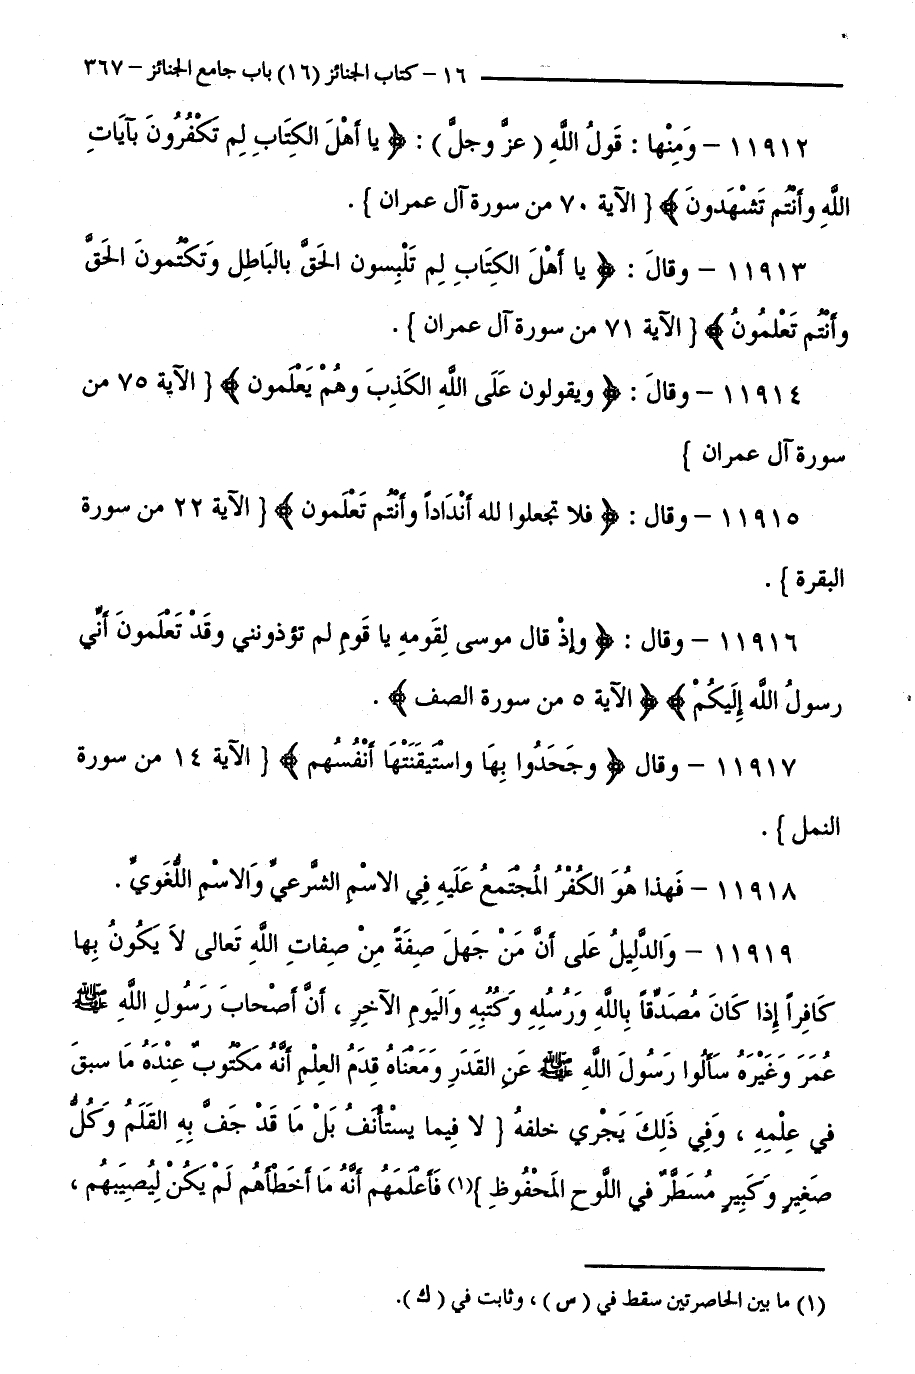 ١٦ – كتاب الجنائز (١٦) باب جامع الجنائز – ٣٦٧
١١٩١٢ – وَمِنْها : قَولُ اللَّهِ ( عزَّ وجلَّ ) : ﴿ يا أَهْلَ الكِتَابِ لِم تَكْفُرُونَ بآيَاتِ
اللَّهِ وأَنْتُم تَشْهَدونَ ﴾ { الآية ٧٠ من سورة آل عمران } .
١١٩١٣ – وقالَ : ﴿ يا أهْلَ الكِتَابِ لِم تَلْبِسون الحَقَّ بالبَاطِل وتَكْتُمونَ الحَقَّ
وأَنْتُم تَعْلمُونُ ﴾ { الآية ٧١ من سورة آل عمران } .
١١٩١٤ – وقالَ : ﴿ ويقولون عَلَى اللَّهِ الكَذِبَ وهُمْ يَعْلَمون ﴾ { الآية ٧٥ من
سورة آل عمران }
١١٩١٥ – وقال : ﴿ فلا تجعلوا لله أنْدَاداً وأَنْتُم تَعْلَمون ﴾ { الآية ٢٢ من سورة
البقرة } .
١١٩١٦ – وقال : ﴿ وإذْ قال موسى لِقومهِ يا قَومِ لم تؤذونني وقَدْ تَعْلمونَ أنِّي
رسولُ اللَّه إِلَيكُمْ ﴾ ﴿ الآية ٥ من سورة الصف ﴾ .
١١٩١٧ – وقال ﴿ وجَحَدُوا بِهَا واسْتَيقَنَتْهَا أَنْفُسُهم ﴾ { الآية ١٤ من سورة
النمل } .
١١٩١٨ – فَهذا هُوَ الكُفْرُ الْمُجْتَمعُ عَلَيهِ فِي الاسْمِ الشَّرعيِّ وَالاسْمِ اللُّغَويِّ .
١١٩١٩ – وَالدَّلِيلُ عَلى أَنَّ مَنْ جَهلَ صِفَةً مِنْ صِفاتِ اللَّهِ تَعالى لاَ يَكُونُ بِها
كَافِراً إِذا كَانَ مُصَدِّقاً بِاللَّهِ وَرُسُلِهِ وَكُتُبِهِ وَاليَومِ الآخِرِ ، أَنَّ أَصْحابَ رَسُولِ اللَّهِ ﷺ
عُمَرَ وَغَيْرَهُ سَأَلُوا رَسُولَ اللَّهِ ﷺ عَنِ القَدَرِ وَمَعْنَاهُ قِدَمُ العِلْمِ أَنَّهُ مَكْتُوبٌ عِنْدَهُ مَا سبقَ
في عِلْمِهِ ، وَفِي ذَلِكَ يَجْرِي خلقهُ { لا فِيما يستْأنفُ بَلْ مَا قَدْ جَفَّ بِهِ القَلَمُ وَكُلُّ
صَغِيرٍ وَكَبِيرٍ مُسَطَّرٌ في اللَّوحِ المَحْفُوظِ }(١) فَأَعْلَمَهُم أَنَّهُ مَا أَخَطْأَهُم لَمْ يَكُنْ لِيُصِيَبهُم ،
(١) ما بين الحاصرتين سقط في ( س ) ، وثابت في ( ك ).